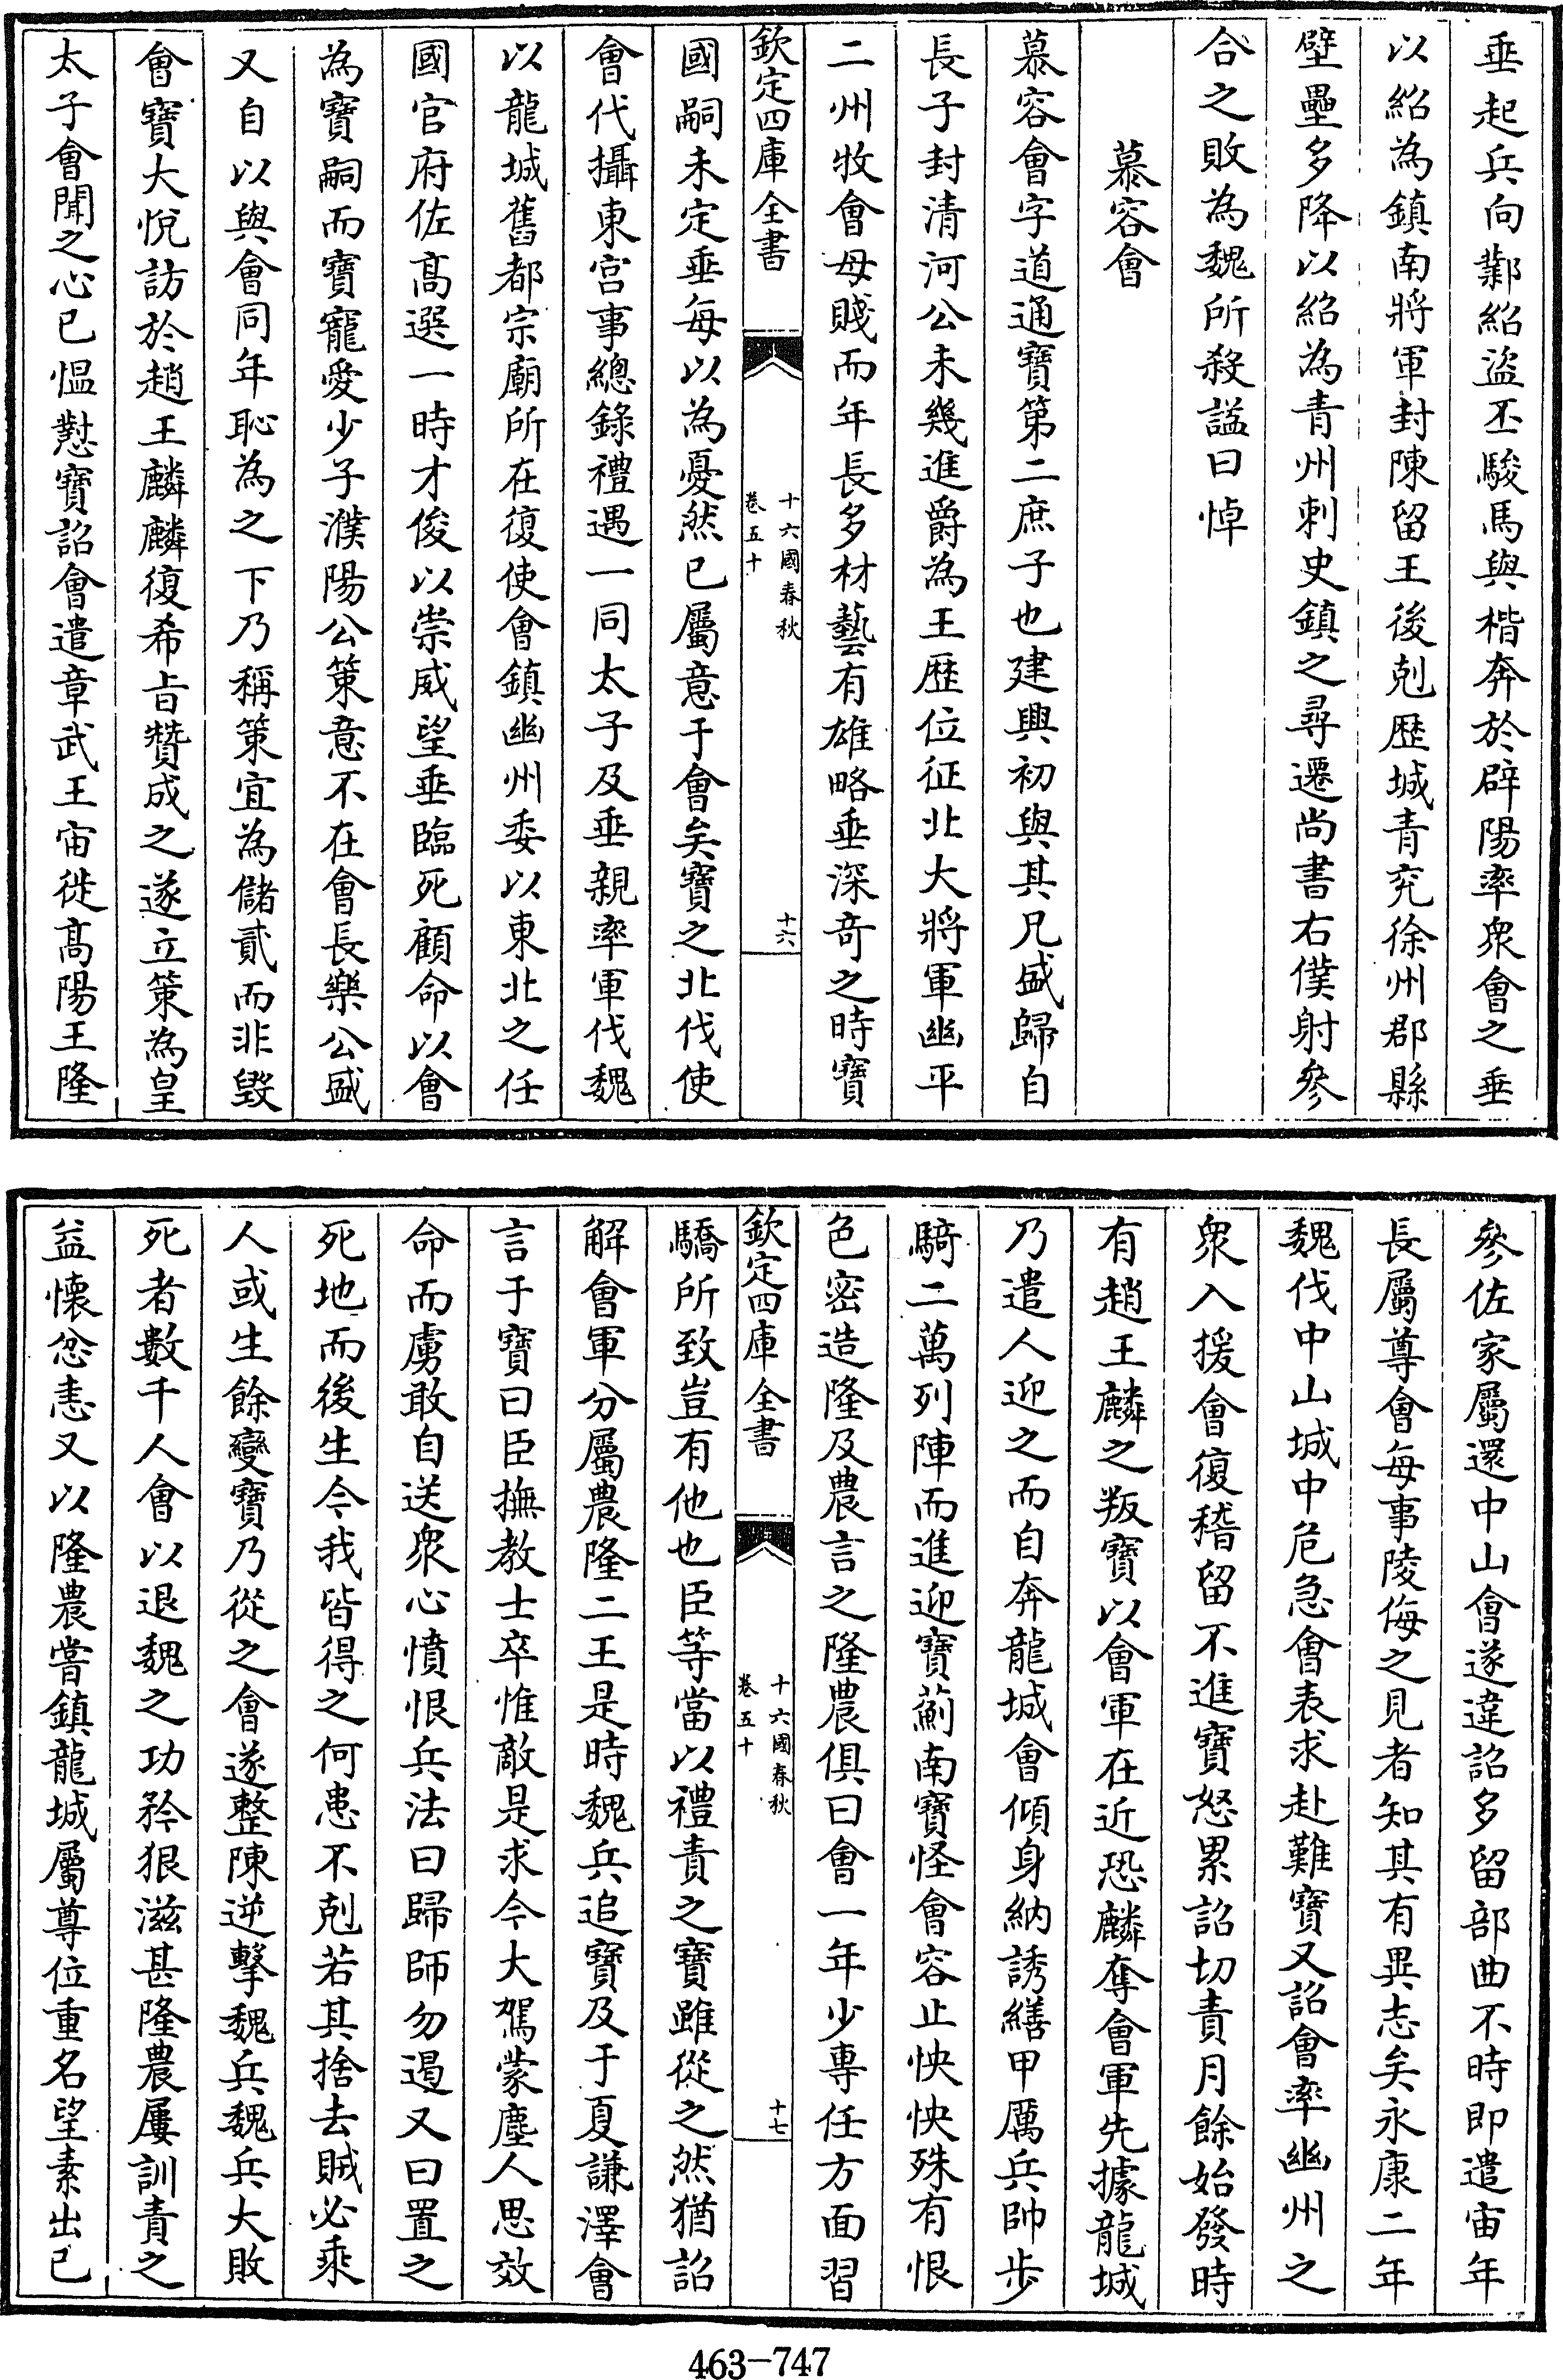 垂起兵向鄴紹盜丕駿馬與楷奔於辟陽率衆會之垂
以紹為鎮南將軍封陳留王後剋歴城青兖徐州郡縣
壁壘多降以紹為青州刺史鎮之尋遷尚書右僕射參
合之敗為魏所殺諡曰悼
慕容會
慕容會字道通寶第二庶子也建興初與其兄盛歸自
長子封清河公未幾進爵為王歴位征北大將軍幽平
二州牧會母賤而年長多材藝有雄略垂深竒之時寶
欽定四庫全書
十六國春秋
卷五十
十六
國嗣未定垂每以為憂然已屬意于會矣寶之北伐使
會代攝東宫事總錄禮遇一同太子及垂親率軍伐魏
以龍城舊都宗廟所在復使會鎮幽州委以東北之任
國官府佐髙選一時才俊以崇威望垂臨死顧命以會
為寶嗣而寶寵愛少子濮陽公策意不在會長樂公盛
又自以與會同年恥為之下乃稱策宜為儲貳而非毀
會寶大悅訪於趙王麟麟復希㫖贊成之遂立策為皇
太子會聞之心已愠懟寶詔會遣章武王宙徙髙陽王隆
參佐家屬還中山會遂違詔多留部曲不時即遣宙年
長屬尊會每事陵侮之見者知其有異志矣永康二年
魏伐中山城中危急會表求赴難寶又詔會率幽州之
衆入援會復稽留不進寶怒累詔切責月餘始發時
有趙王麟之叛寶以會軍在近恐麟奪會軍先據龍城
乃遣人迎之而自奔龍城會傾身納誘繕甲厲兵帥步
騎二萬列陣而進迎寶薊南寶怪會容止怏怏殊有恨
色密造隆及農言之隆農俱曰會一年少専任方面習
欽定四庫全書
十六國春秋
卷五十
十七
驕所致豈有他也臣等當以禮責之寶雖從之然猶詔
解會軍分屬農隆二王是時魏兵追寶及于夏謙澤會
言于寶曰臣撫教士卒惟敵是求今大駕蒙塵人思效
命而虜敢自送衆心憤恨兵法曰歸師勿遏又曰置之
死地而後生今我皆得之何患不剋若其捨去賊必乘
人或生餘變寶乃從之會遂整陳逆擊魏兵魏兵大敗
死者數千人會以退魏之功矜狠滋甚隆農屢訓責之
益懷忿恚又以隆農嘗鎮龍城屬尊位重名望素出已
463-747